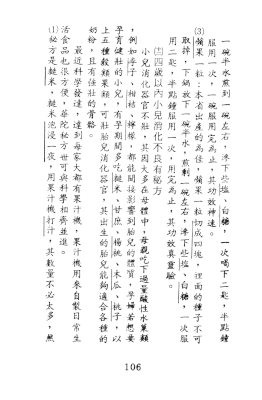 一碗半水煎到一碗左右,滲下些塩、白糖,一次喝下二匙,半點鐘
服用一次,一碗服用完為止,其功效神速。
(3)蘋果一粒:本省出產的為佳,蘋果一粒切成四塊,裡面的種子不可
取掉,下鍋放下一碗半水,煎剩一碗左右,滲下些塩、白糖,一次服
用二匙,半點鐘服用一次,服用完為止,其功效真靈驗。
㈩四歲以內小兒消化不良有秘方
小兒消化器官不壯,其因大多在母體中,母親吃下過量酸性水果類
,例如柿子、柑桔、檸檬,都能間接影響到胎兒的體質,孕婦若想要
孕育健壯的小兒,有孕期間多吃糙米、甘蔗、楊桃、木瓜、桃子,以
上五種穀類果類,可壯胎兒消化器官,其出生的胎兒能夠適合各種的
奶粉,且有強壯的骨骼。
最近科學發達,達到每家大都有果汁機,果汁機用來自製日常生
活食品也很方便,華陀秘方也可與科學相齊並進。
(1)秘方是糙米,糙米泡浸一夜,用果汁機打汁,其數量不必太多,然
106